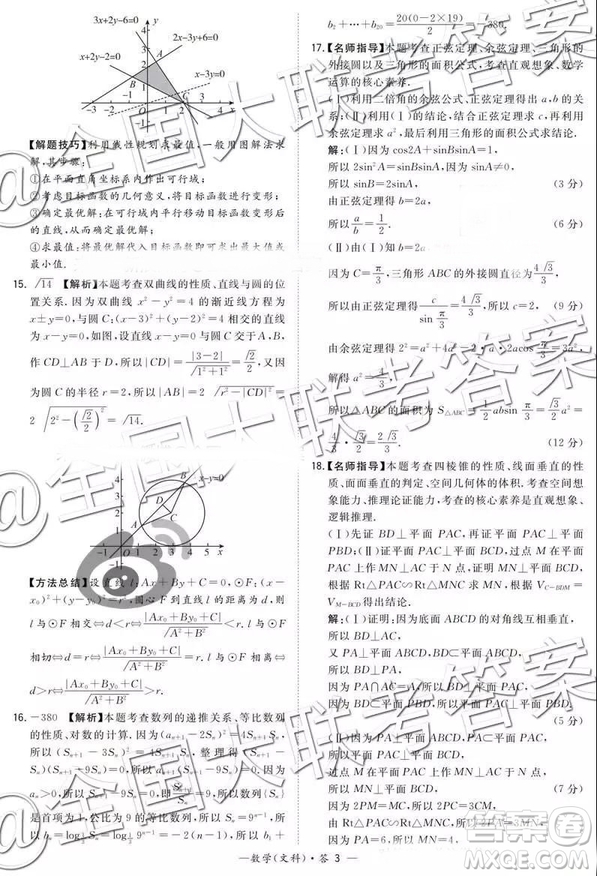 3x+y-6=0
2x-3y+6=0
x+2y-2=0
x-3y=0
【解题技巧】利用线性规划求最值,一般用图解法求
解,其步骤:
①在平面直角坐标系内作出可行域;
②考虑目标函数的几何意义,将目标函数进行变形;
③确定最优解:在可行域内平行移动目标函数变形
后的直线,从而确定最优解;
④求最值:将最优解代入目标函数即可求出最大值
或最小值.
15. √14 【解析】本题考查双曲线的性质、直线与圆的位
置关系.因为双曲线 x²-y²=4 的渐近线方程为
x±y=0,与圆C₁(x-3)²+(y-2)²=4 相交的直线
为x-y=0,如图,设直线x-y=0与圆C交于A,B,
作CD⊥AB于D,所以|CD|=|3-2|/√(1²+1²)=√2/2,又因
为圆C的半径r=2,所以|AB|=2√(r²-|CD|²)=
2√(2²-(√2/2)²)=√14.
x-y=0
【方法总结】设直线l:Ax+By+C=0,⊙F:(x-
x₀)²+(y-y₀)²=r,圆心F到直线l的距离为d,则
l与⊙F相交⇔d<r⇔|Ax₀+By₀+C|/√(A²+B²)<r.l与⊙F
相切⇔d=r⇔|Ax₀+By₀+C|/√(A²+B²)=r.l与⊙F相离⇔
d>r⇔|Ax₀+By₀+C|/√(A²+B²)>r.
16. -380 【解析】本题考查数列的递推关系、等比数列
的性质、对数的计算.因为(aₙ₊₁-2Sₙ)²=4SₙSₙ₊₁,
所以(Sₙ₊₁-3Sₙ)²=4SₙSₙ₊₁,整理得(Sₙ₊₁-
Sₙ)(Sₙ₊₁-9Sₙ)=0.因为
是首项为1,公比为9的等比数列,所以Sₙ=9ⁿ⁻¹,所
b₂+…+b₂₀=20(0-2×19)/2=-380.
17.【名师指导】本题考查正弦定理、余弦定理、三角形的
外接圆以及三角形的面积公式,考查直观想象、数学
运算的核心素养.
(Ⅰ)利用二倍角的余弦公式、正弦定理得出结论;
(Ⅱ)利用(Ⅰ)的结论,结合正弦定理、余弦定理
求出a²,最后利用三角形的面积公式求解.
解:(Ⅰ)因为cos2A+sinBsinA=1,
所以2sin²A=sinBsinA,因为sinA≠0,
所以sinB=2sinA, (3分)
由正弦定理得b=2a,
所以a/b=1/2. (6分)
(Ⅱ)由(Ⅰ)知b=2a,
因为C=π/3,三角形ABC的外接圆直径为4√3/3,
所以由正弦定理得c/sin π/3=4√3/3,所以c=2, (9分)
由余弦定理得2²=a²+4a²-2a·2acos π/3=3a²,
解得a²=4/3,
所以△ABC的面积S△ABC=1/2 absin π/3=√3/2 a²=
4/3·√3/2=2√3/3. (12分)
18.【名师指导】本题考查四棱锥的性质、线面垂直的性
质与判定、空间几何体的体积.考查空间想
象能力、推理论证能力,考查的核心素养是直观想象、
逻辑推理.
(Ⅰ)先证BD⊥平面PAC,再证平面PAC⊥平面
PBD;(Ⅱ)由平面PAC⊥平面BCD,
Rt△PAC∽Rt△MNC求MN,根据V_C-BDM=
V_M-BCD得出结论.
解:(Ⅰ)因为底面ABCD的对角线互相垂直,
所以BD⊥AC,
又PA⊥平面ABCD,BD⊂平面ABCD,
所以PA⊥BD,
因为PA∩AC=A,所以BD⊥平面PAC,
因为BD⊂平面PBD,
所以平面PAC⊥平面PBD. (5分)
(Ⅱ)因为PA⊥平面BCD,PA⊂平面PAC,
所以平面PAC⊥平面BCD,
过点M作MN⊥AC,交AC于点N,
所以MN⊥平面BCD, (7分)
因为2PM=MC,所以PC=3PM,
易得Rt△PAC∽Rt△MNC,
因为PA=6,所以MN=4.
—数学(文科)·答 3—
@全国大联考答案
答案圈
MXQE.COM